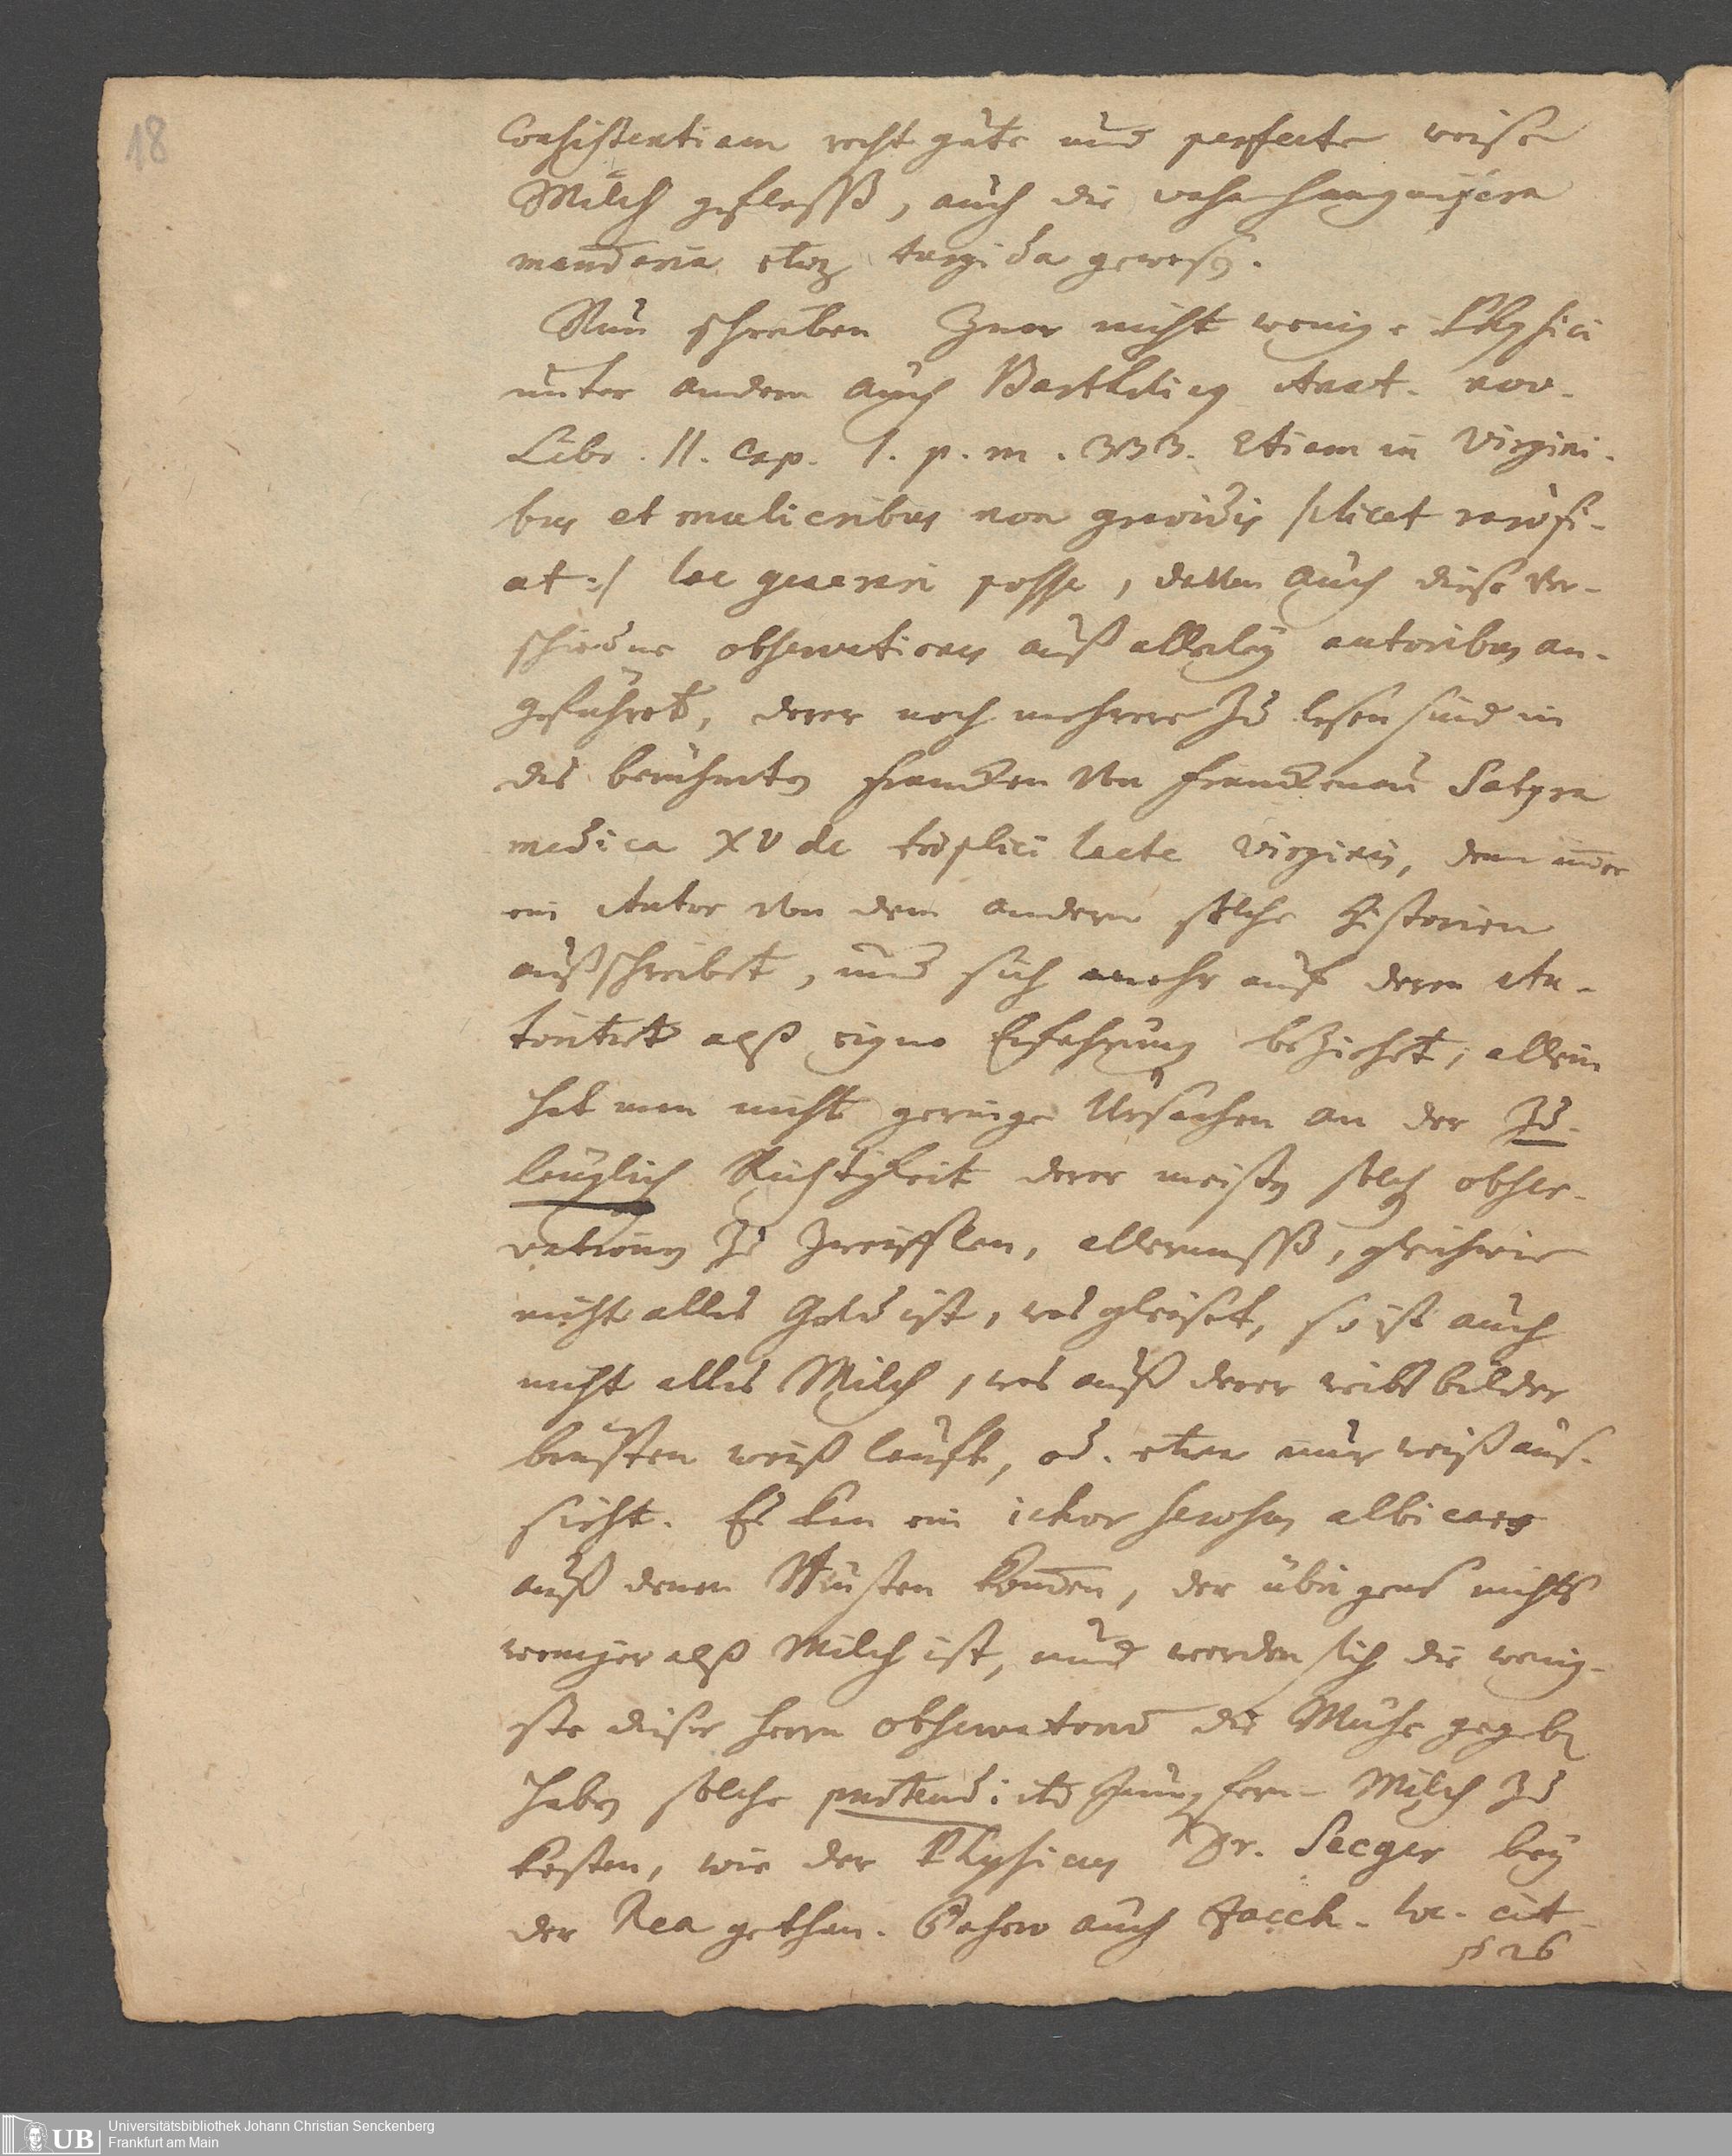 18
Consistentiam recht gute und perfecte weise
Milch geflosß, auch die vasa sanguifera
mam̅aria etwz turgida gewesen.
Nun schreiben Zwar nicht wenige Physici
unter andern auch Bartholing Anat. nov.
Libr. II. Cap. 1. p. m. 333. Etiam in Virgini-
bus et mulieribus non gravidis /:licet rarò fi-
at:/ lac generari posse, deßen auch diese Ver-
schiedne observationes auß allerley autoribus an-
geführet, derer noch mehrere Zu lesen sind in
des berühmten Francken Von Franckenau Satyra
medica XV de triplici lacte virginis, dem im̅er
ein Autor Von dem andern solche Historien
außschreibet, und sich mehr auf deren Au-
toritet alß eigne Erfahrung beziehet; allein
hat man nicht geringe Ursachen an der Zu-
länglich Richtigkeit derer meisten solch obser-
vationen Zu Zweifflen, allermasß, gleichwie
nicht alles Gold ist, was gleiset, so ist auch
nicht alles Milch, was auß derer weibsbilder
brusten weiß lauft, od. etwa nur weiß aus-
sieht. Es kan ein ichor serosus albicans
auß denen Brüsten kom̅en, der übrigens nichts
weniger alß Milch ist, und werden sich die wenig-
ste dieser Herrn observatorum die Mühe gegeben
haben solche prætendirte Jungfern-Milch Zu
kosten, wie der Physicus Dr. Seeger bey
der Rea gethan. Dahero auch Zacch. loc. cit.
§ 26
Universitätsbibliothek Johann Christian Senckenberg
Frankfurt am Main
UB